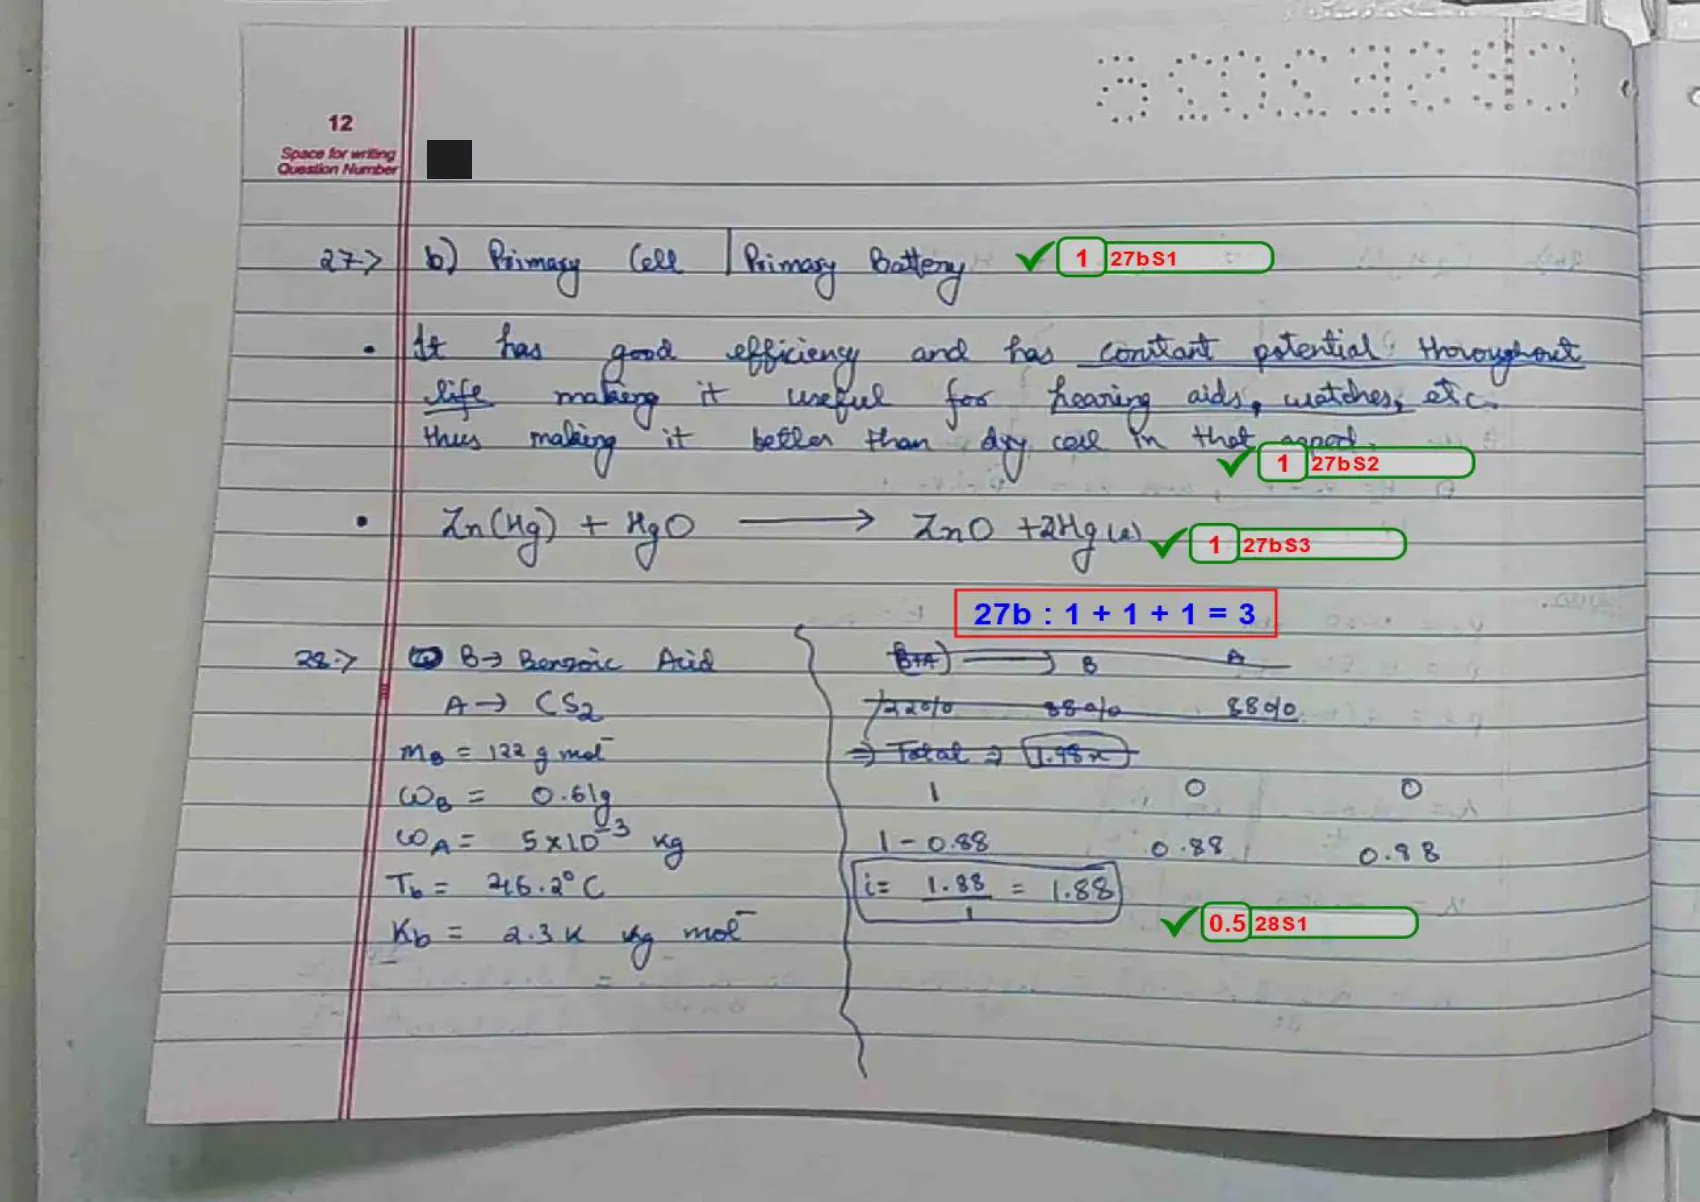 12
Space for writing
Question Number
27.> b) Primary Cell | Primary Battery
1 27bS1
• It has good efficiency and has constant potential thoroughout
life making it useful for hearing aids, watches, etc.
thus making it better than dry cell in that
1 27bS2
• Zn(Hg) + HgO ⟶ ZnO + 2Hg(l)
1 27bS3
27b : 1 + 1 + 1 = 3
28.> B→ Benzoic Acid
A→ CS₂
MB = 122 g mol⁻
ωB = 0.61g
ωA = 5×10⁻³ kg
Tb = 46.2°C
Kb = 2.3 K kg mol⁻
(B+A) ⟶ B A
88% 88%
⇒ Total ⇒ 1.98x
1 0 0
1 - 0.88 0.88 0.88
i = 1.88/1 = 1.88
0.5 28S1